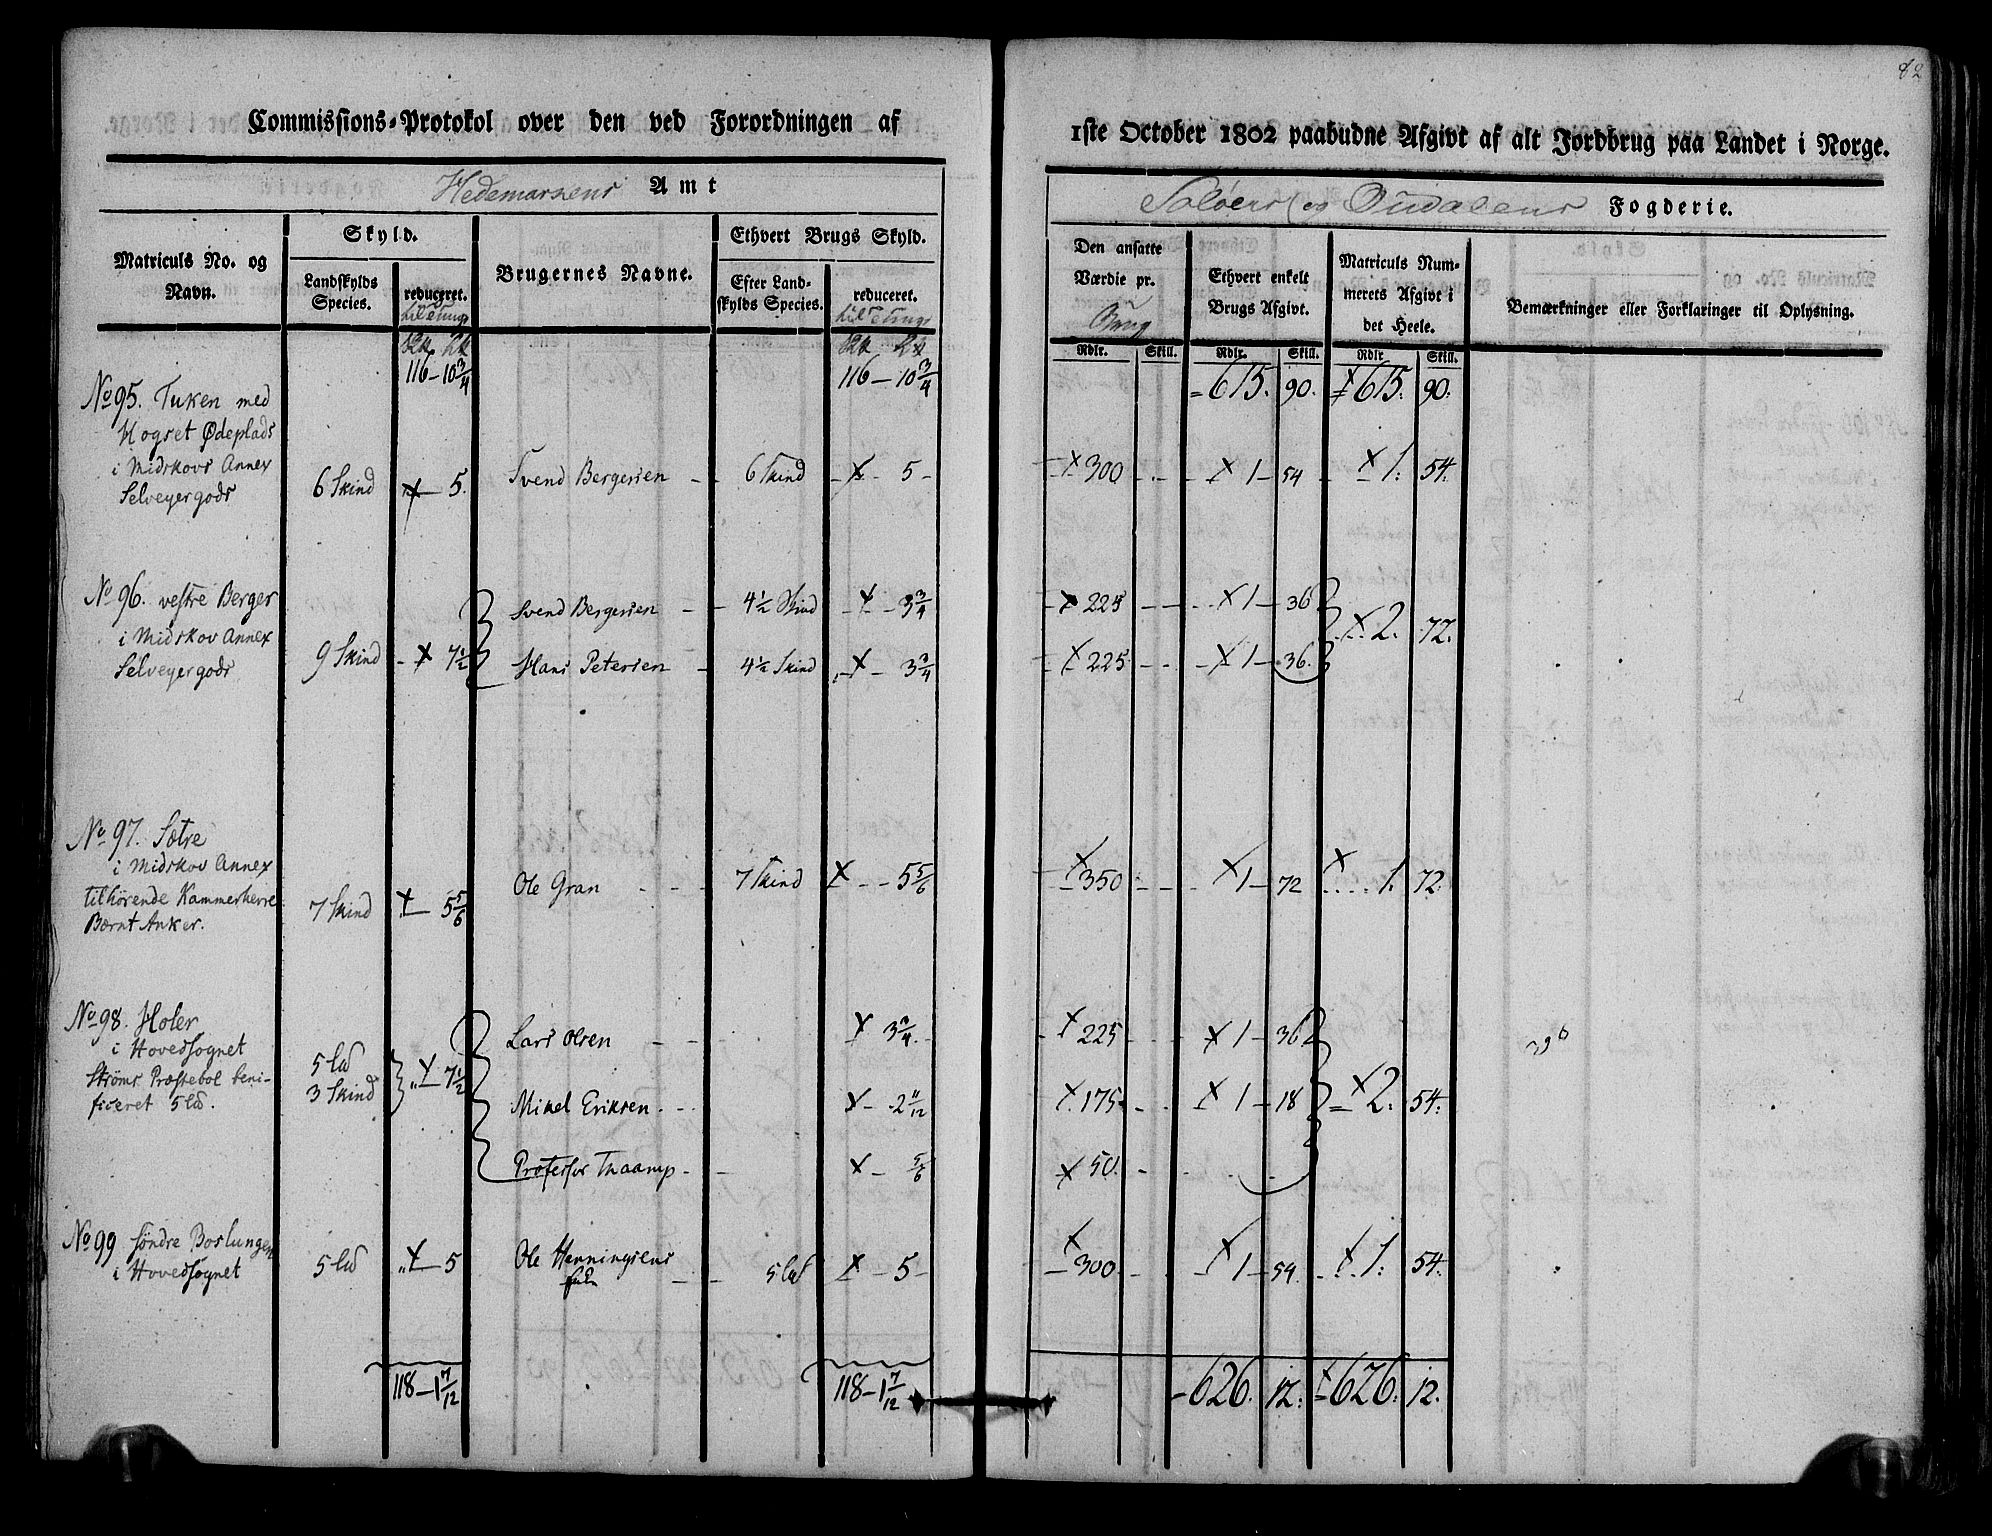 82
Commissions-Protokol over den ved Forordningen af
1ste October 1802 paabudne Afgivt af alt Jordbrug paa Landet i Norge.
Hedemarkens Amt
Soløers og Oudalens Fogderie.
Matriculs No. og Navn.
Skyld.
Landskylds Species.
reduceret.
Brugernes Navne.
Ethvert Brugs Skyld.
Efter Landskylds Species.
reduceret.
Den ansatte Værdie pr. Brug
Ethvert enkelt Brugs Afgivt.
Matriculs Nummerets Afgivt i det Heele.
Bemærkninger eller Forklaringer til Oplysning.
Rdlr. Skill. Rdlr. Skill. Rdlr Skill.
116 - 10 3/4 116 - 10 3/4 = 615. 90. 615. 90.
No 95. Tuken med
Hogset Ødeplads
i Midskovs Annex
Selveyergods 6 Skind 5. Svend Bergersen 6 Skind 5 300 1 - 54 1. 54.
No 96. vestre Berger Svend Bergersen 4 1/2 Skind 3 3/4 225 1 - 36
i Midskov Annex 2. 72.
Selveyergods 9 Skind 7 1/2 Hans Petersen 4 1/2 Skind 3 3/4 225 1 - 36.
No 97. Sætre
i Midskov Annex
tilhørende Kammerherre
Bernt Anker. 7 Skind 5 5/6 Ole Gran 7 Skind 5 5/6 350 1 - 72 1. 72.
No 98. Holer Lars Olsen 3 3/4 225 1 - 36
i Hovedsognet
Strøms Præstebol beni-
ficeret 5 l℔. 5 l℔ 3 Skind 7 1/2 Mikel Eriksen 2 11/12 175 1 - 18 2. 54.
Professor Thaarup 5/6 50.
No 99 søndre Boslungen
i Hovedsognet 5 l℔ 5 Ole Henningsens 5 l℔ 5 300 1 - 54. 1. 54.
118 - 1 7/12 118 - 1 7/12 626. 12. 626. 12.